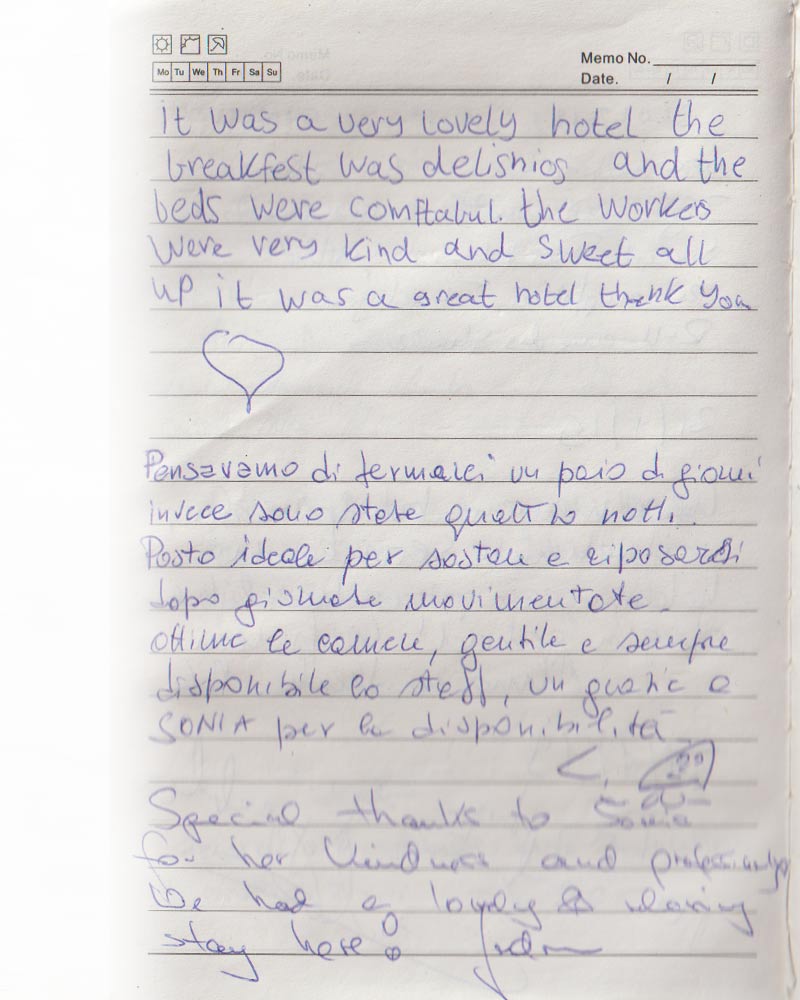 Mo Tu We Th Fr Sa Su
Memo No.
Date. / /
it was a very lovely hotel the
breakfest was delishios and the
beds were comftabul. the workers
were very kind and sweet all
up it was a great hotel thank you
Pensavamo di fermarci un paio di giorni
invece sono state quattro notti.
Posto ideale per sostare e riposarsi
dopo giornate movimentate.
Ottime le camere, gentile e sempre
disponibile lo staff, un grazie a
SONIA per la disponibilità
Special thanks to Sonia
for her kindness and
We had a lovely & relaxing
stay here!